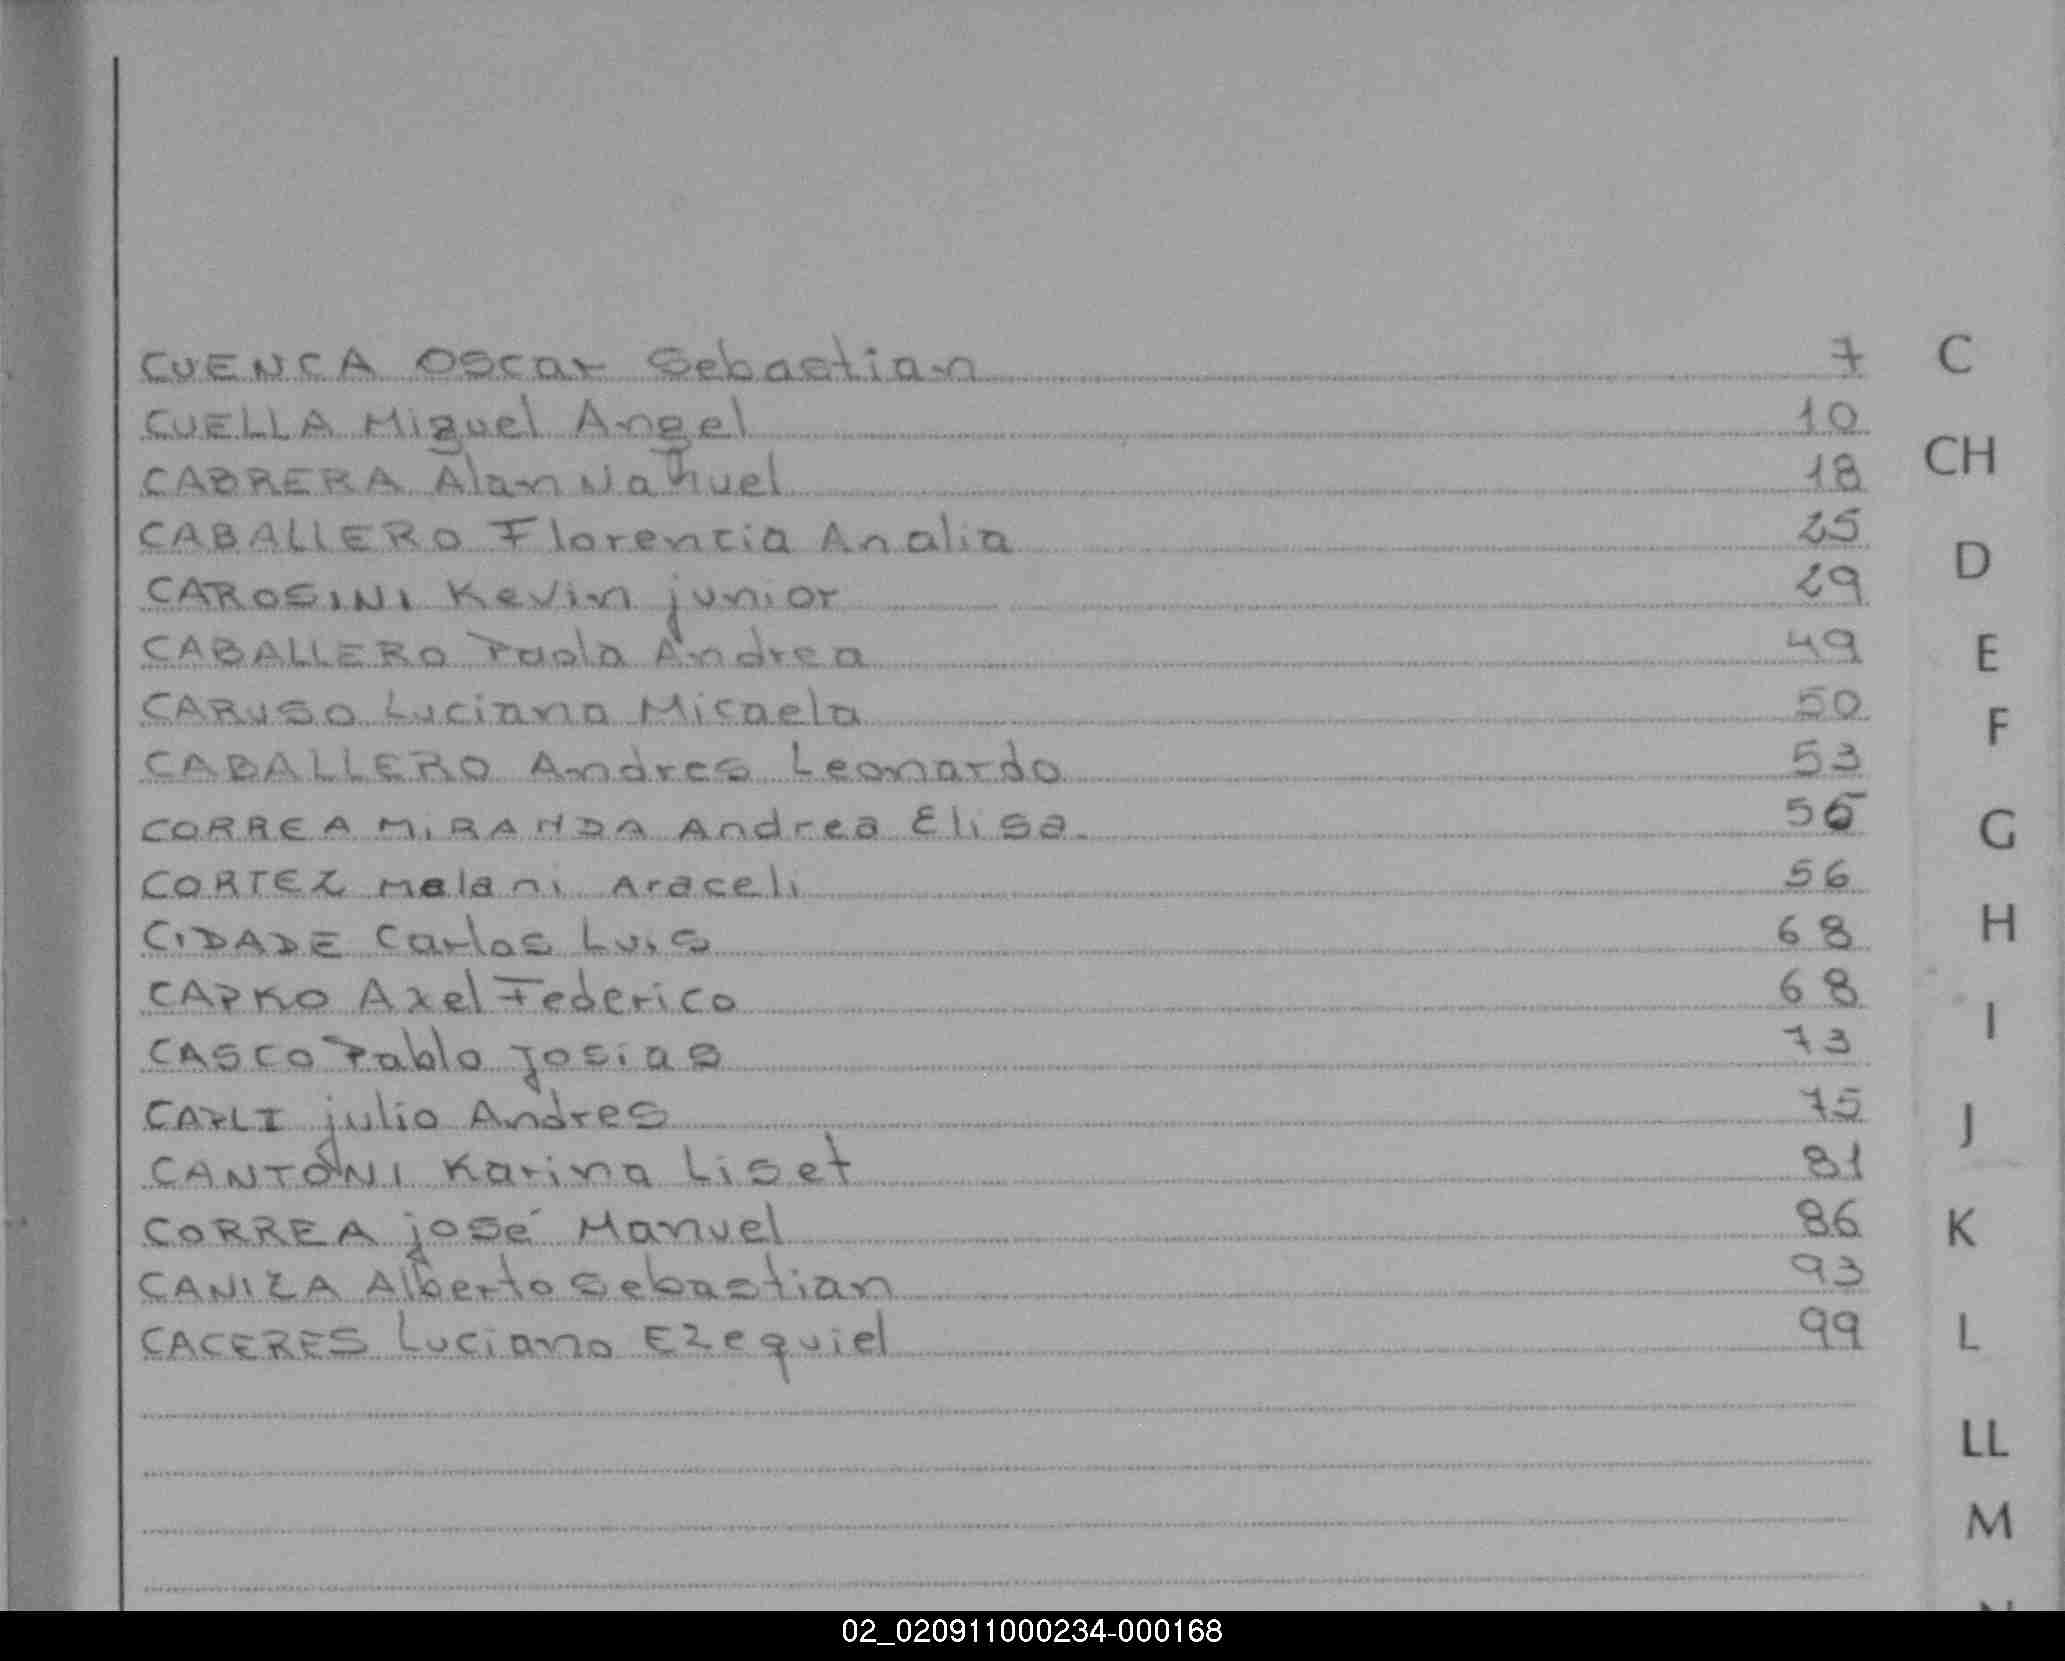 CUENCA Oscar Sebastian 7
CUELLA Miguel Angel 10
CABRERA Alan Nahuel 18
CABALLERO Florencia Analia 25
CAROSINI Kevin junior 29
CABALLERO Paola Andrea 49
CARUSO Luciana Micaela 50
CABALLERO Andres Leonardo 53
CORREA MIRANDA Andrea Elisa. 56
CORTEZ Melani Araceli 56
CIDADE Carlos Luis 68
CAPKO Axel Federico 68
CASCO Pablo Josias 73
julio Andres 75
CANTONI Karina Liset 81
CORREA josé Manuel 86
CANIZA Alberto Sebastian 93
CACERES Luciano Ezequiel 99
C
CH
D
E
F
G
H
I
J
K
L
LL
M
02_020911000234-000168